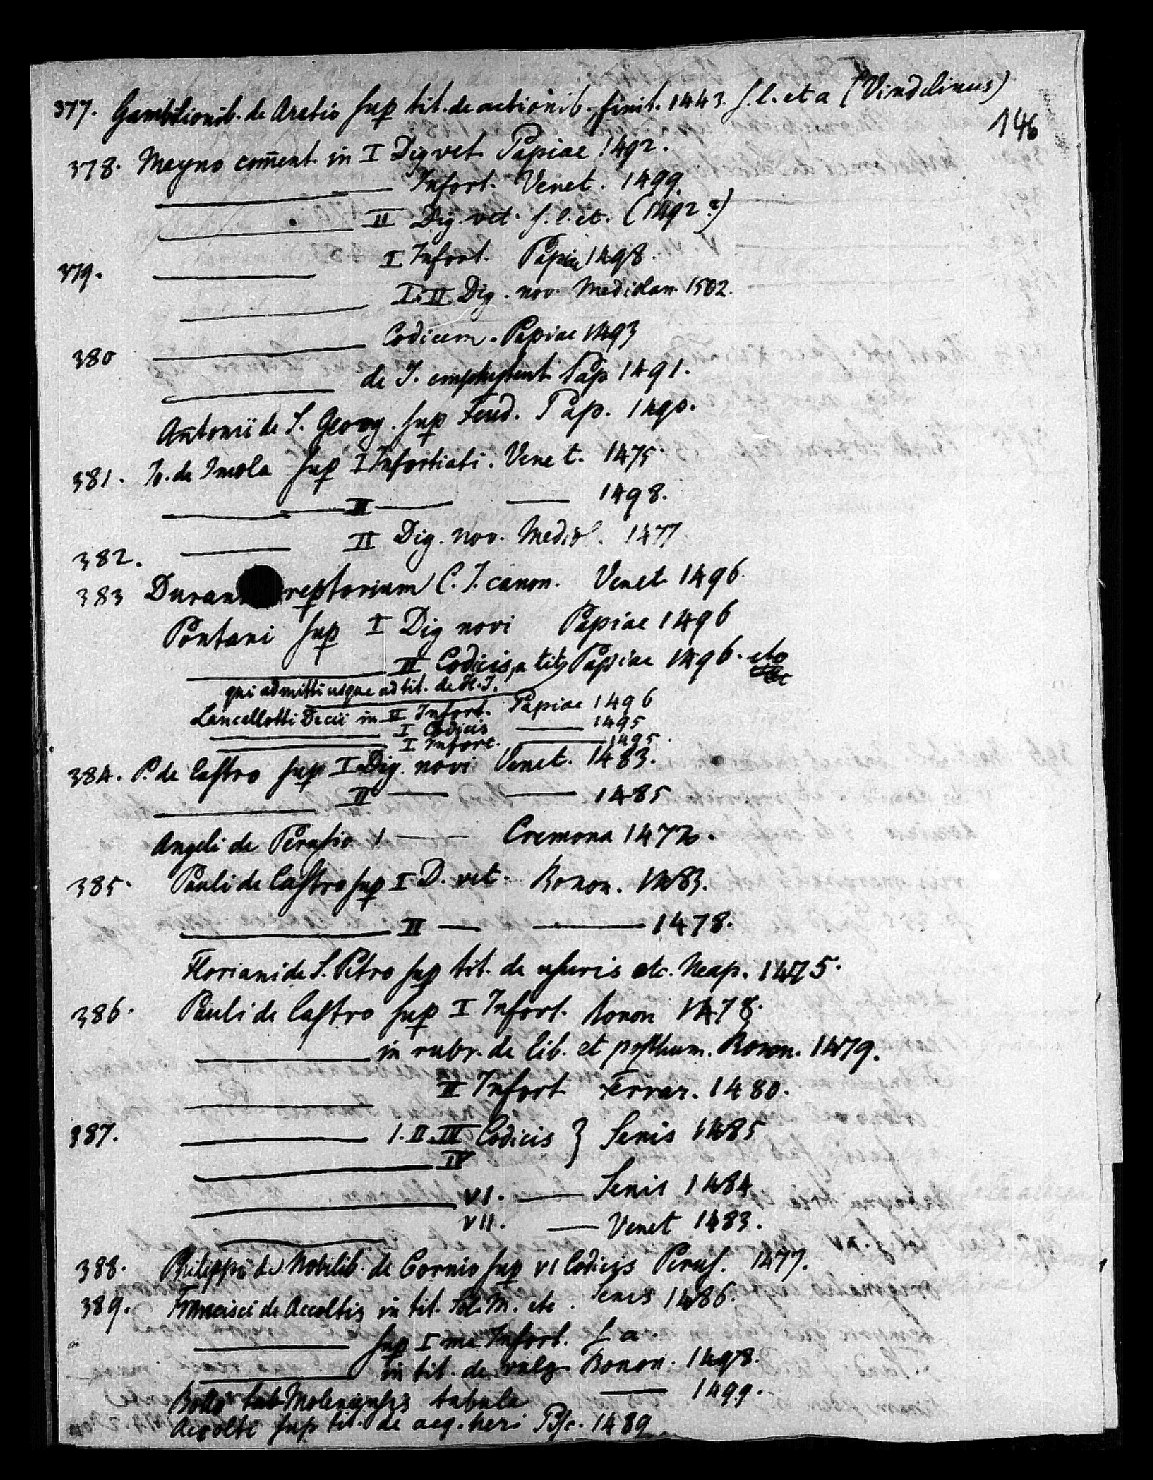 377. Gambilionib. de Aretio sup tit. de actionib. finit. 1443 s. l. et a (Vindelinus)
146
378. Mayno com̄ent. in I Dig vet Papiae 1492.
Infort. Venet. 1499.
II Dig. vet. s. l. et. (1492?)
379. I Infort. Papiae 1498.
I. II Dig. nov. Mediolan 1502.
380 Codicem. Papiae 1493
de J. emphyteut Pap 1491.
Antonii de S. Georg. sup Feud. Pap. 1490.
381. Jo. de Imola sup I Infortiati. Venet. 1475
II 1498.
382. II Dig. nov. Mediol. 1477
383 Duran reptorium C. J. canon. Venet 1496.
Pontani sup I Dig novi Papiae 1496
II Codicis, a tit. Papiae 1496. etc
qui admitti usque ad tit. de H. J.
Lancellotti Decii in II Infort. Papiae 1496
I Codicis 1495
I Infort. 1495.
384. P. de Castro sup I Dig. novi Venet. 1483.
II 1485
Angeli de Perusio 1 Cremona 1472.
385. Pauli de Castro sup I D. vet. Bonon. 1483.
II 1478.
Floriani de S. Petro sup tit. de usuris etc. Neap. 1475.
386. Pauli de Castro sup I Infort. Bonon 1478.
in rubr. de lib. et posthum. Bonon. 1479.
II Infort Ferrar. 1480.
387. I. II. III Codicis } Senis 1485
IV
VI. Senis 1484
VII. Venet 1483.
388. Philippi de Nobilib. de Cornio sup VI Codicis Perus. 1477.
389. Francisci de Accoltis in tit. Sol. M. etc. Senis 1486.
sup I ma Infort. s. a
in tit. de vulg Bonon. 1498.
tabula 1499.
Accolti sup tit. de acq. heri Pisc. 1489